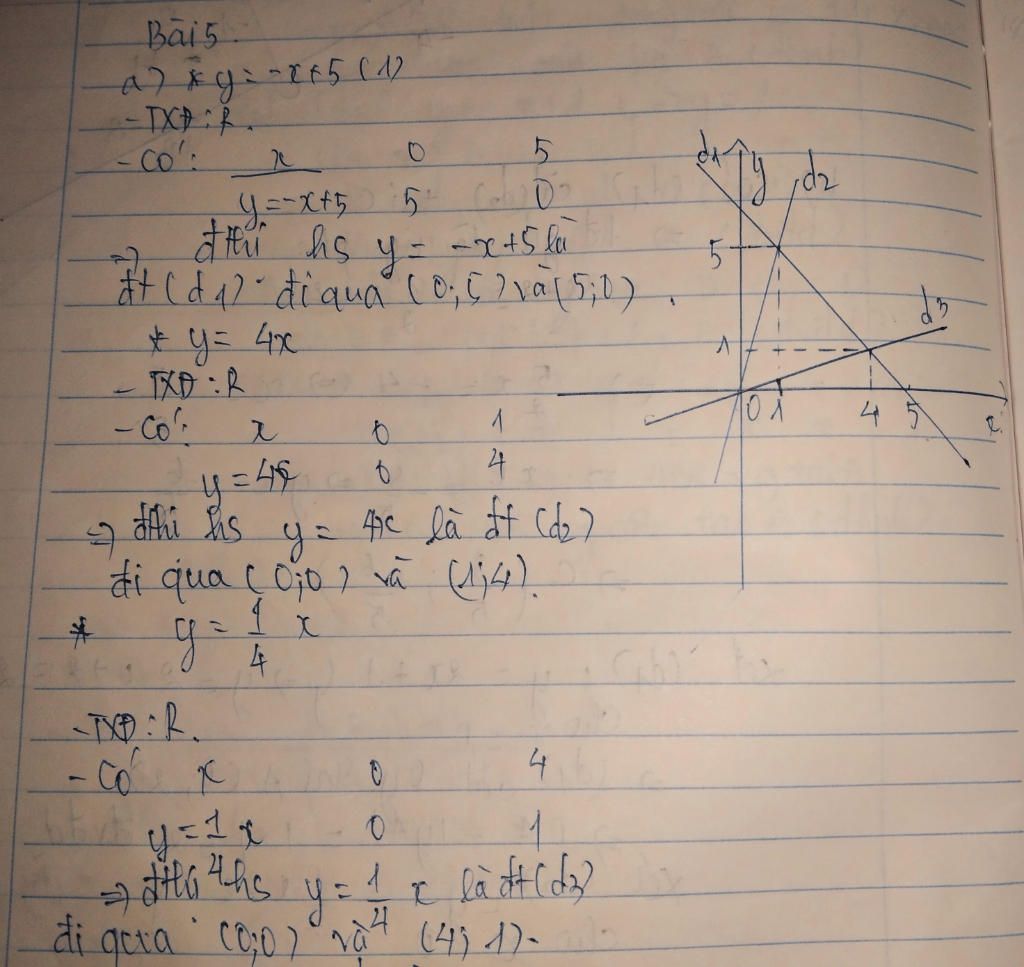 Bài 5.
a) * y = -x+5 (1)
- TXĐ: R.
- Có: x 0 5
y=-x+5 5 0
=> đthị hs y = -x+5 là
đt (d1) đi qua (0;5) và (5;0).
* y = 4x
- TXĐ: R
- Có: x 0 1
y = 4x 0 4
=> đthị hs y = 4x là đt (d2)
đi qua (0;0) và (1;4).
* y = 1/4 x
- TXĐ: R.
- Có x 0 4
y = 1/4 x 0 1
=> đthị hs y = 1/4 x là đt (d3)
đi qua (0;0) và (4; 1).
d1 y d2
5
d3
1
0 1 4 5 x